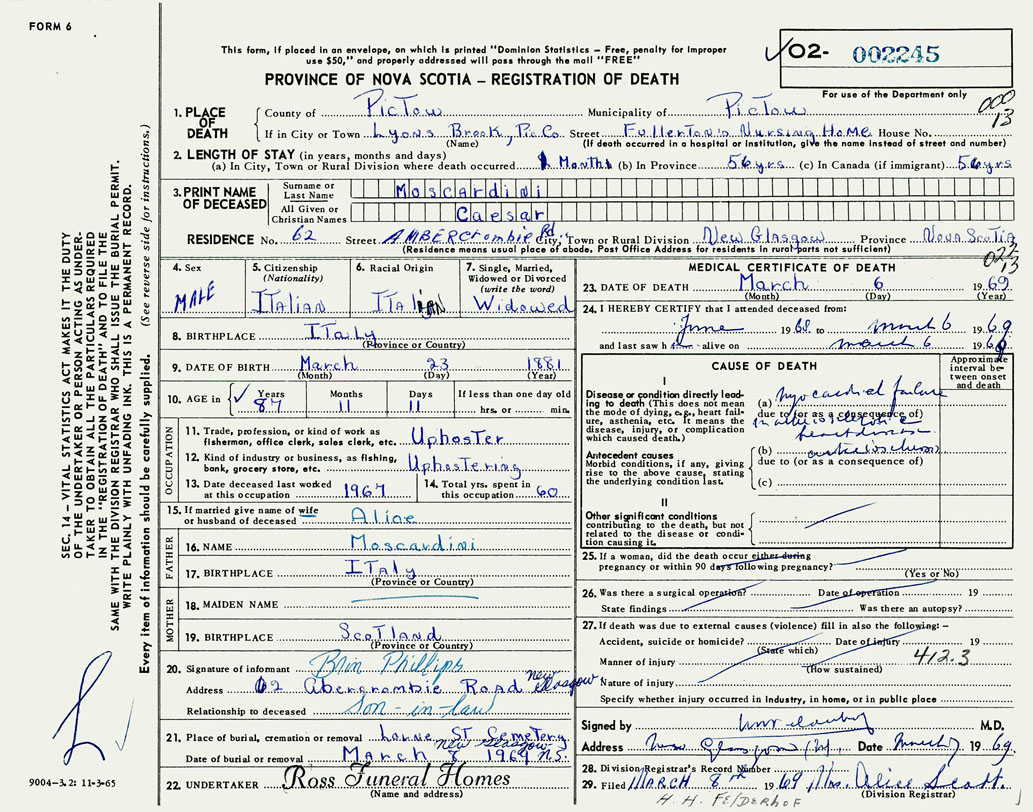 FORM 6
This form, if placed in an envelope, on which is printed "Dominion Statistics – Free, penalty for improper
use $50," and properly addressed will pass through the mail "FREE"
PROVINCE OF NOVA SCOTIA – REGISTRATION OF DEATH
O2- 002245
For use of the Department only
000
13
1. PLACE OF DEATH
County of PicTow Municipality of PicTow
If in City or Town Lyons Brook, Pic Co. Street Fullerton's Nursing Home House No.
(Name) (If death occurred in a hospital or institution, give the name instead of street and number)
2. LENGTH OF STAY (in years, months and days)
(a) In City, Town or Rural Division where death occurred Months (b) In Province 56 yrs (c) In Canada (if immigrant) 56 yrs
3. PRINT NAME OF DECEASED
Surname or Last Name Moscardini
All Given or Christian Names Caesar
RESIDENCE No. 62 Street AMBERCrombie Rd. City, Town or Rural Division New Glasgow Province Nova Scotia
(Residence means usual place of abode. Post Office Address for residents in rural parts not sufficient)
4. Sex MALE
5. Citizenship (Nationality) ITALIAN
6. Racial Origin ITALIAN
7. Single, Married, Widowed or Divorced (write the word) Widowed
8. BIRTHPLACE ITaly
(Province or Country)
9. DATE OF BIRTH March 23 1881
(Month) (Day) (Year)
10. AGE in Years 87 Months 11 Days 11 If less than one day old hrs. or min.
OCCUPATION
11. Trade, profession or kind of work as fisherman, office clerk, sales clerk, etc. Uphoster
12. Kind of industry or business, as fishing, bank, grocery store, etc. Uphostering
13. Date deceased last worked at this occupation 1967
14. Total yrs. spent in this occupation 60
15. If married give name of wife or husband of deceased Alice
FATHER
16. NAME Moscardini
17. BIRTHPLACE ITaly
(Province or Country)
MOTHER
18. MAIDEN NAME
19. BIRTHPLACE Scotland
(Province or Country)
20. Signature of informant Brin Phillips
Address 62 Abercrombie Road New Glasgow
Relationship to deceased Son-in-law
21. Place of burial, cremation or removal Lorne ST Cemetery
New Glasgow N.S.
Date of burial or removal March 8 1969
22. UNDERTAKER Ross Funeral Homes
(Name and address)
MEDICAL CERTIFICATE OF DEATH
13
23. DATE OF DEATH March 6 1969
(Month) (Day) (Year)
24. I HEREBY CERTIFY that I attended deceased from:
June 1968 to March 6 1969
and last saw h alive on March 6 1969
CAUSE OF DEATH
Approximate interval between onset and death
I
Disease or condition directly leading to death (This does not mean the mode of dying, e.g., heart failure, asthenia, etc. It means the disease, injury, or complication which caused death.)
(a) Myocardial failure
due to (or as a consequence of)
heart disease
Antecedent causes
Morbid conditions, if any, giving rise to the above cause, stating the underlying condition last.
(b)
due to (or as a consequence of)
(c)
II
Other significant conditions
contributing to the death, but not related to the disease or condition causing it.
25. If a woman, did the death occur either during
pregnancy or within 90 days following pregnancy?
(Yes or No)
26. Was there a surgical operation? Date of operation 19
State findings Was there an autopsy?
27. If death was due to external causes (violence) fill in also the following: –
Accident, suicide or homicide? Date of injury 19
(State which)
Manner of injury 412.3
(How sustained)
Nature of injury
Specify whether injury occurred in industry, in home, or in public place
Signed by M.D.
Address New Glasgow Date March 7 1969.
28. Division Registrar's Record Number
29. Filed MARCH 8th 1969 Mrs. Alice Scott.
(Division Registrar)
H. H. FELDERHOF
SEC. 14 – VITAL STATISTICS ACT MAKES IT THE DUTY
OF THE UNDERTAKER OR PERSON ACTING AS UNDER-
TAKER TO OBTAIN ALL THE PARTICULARS REQUIRED
IN THE "REGISTRATION OF DEATH" AND TO FILE THE
SAME WITH THE DIVISION REGISTRAR WHO SHALL ISSUE THE BURIAL PERMIT.
WRITE PLAINLY WITH UNFADING INK. THIS IS A PERMANENT RECORD.
Every item of information should be carefully supplied. (See reverse side for instructions.)
9004–3.2: 11-3-65